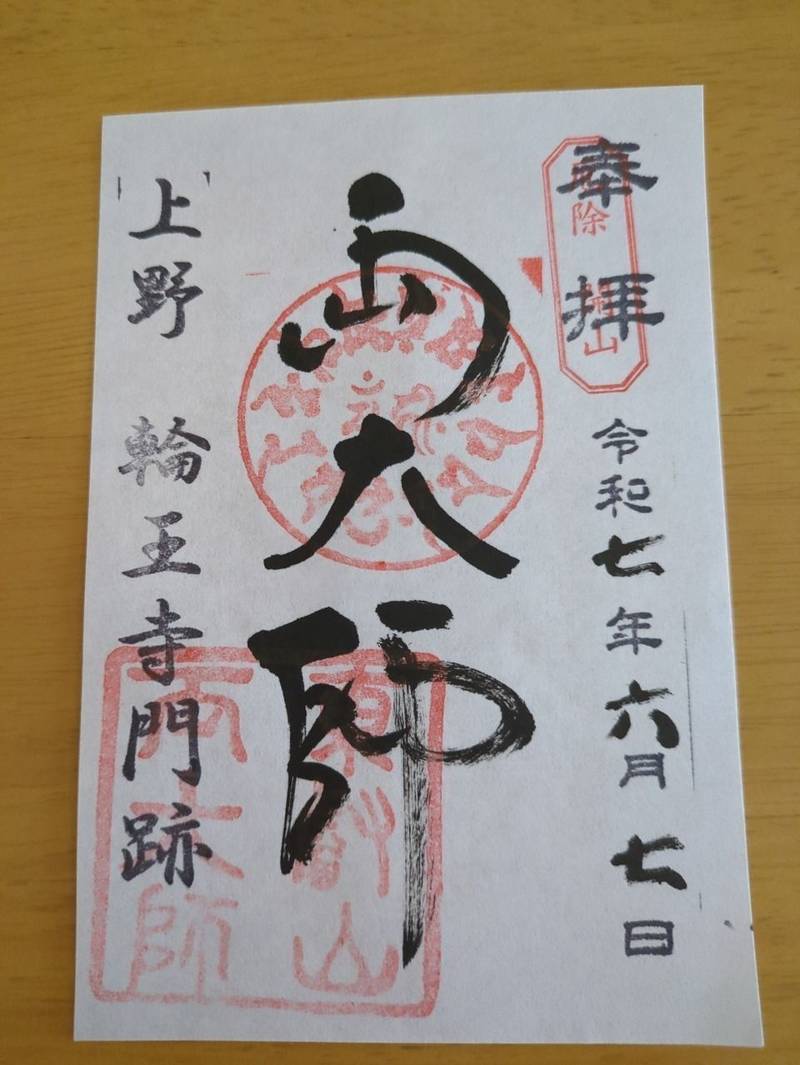 奉拝
除
山
令和七年六月七日
両大師
東叡山
両大師
上野 輪王寺門跡